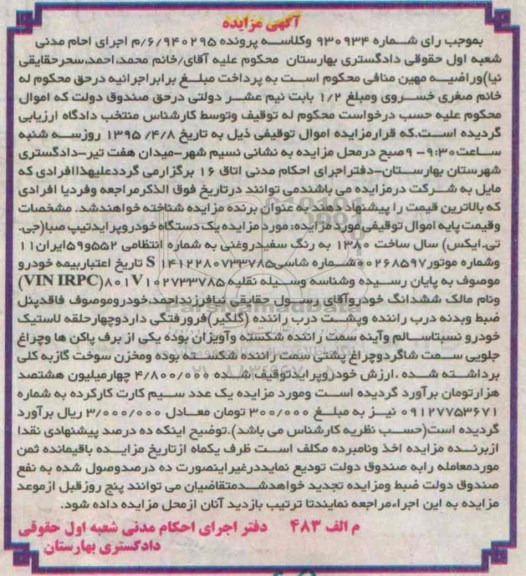 آگهی مزایده
بموجب رای شماره ۹۳۰۹۳۴ وکلاسه پرونده ۶/۹۴۰۲۹۵/م اجرای احام مدنی
شعبه اول حقوقی دادگستری بهارستان محکوم علیه آقای/خانم محمد،احمد،سحرحقایقی
نیا)وراضیه مهین منافی محکوم است به پرداخت مبلغ برابراجرائیه درحق محکوم له
خانم صغری خسروی ومبلغ ۱/۲ بابت نیم عشر دولتی درحق صندوق دولت که اموال
محکوم علیه حسب درخواست محکوم له توقیف وتوسط کارشناس منتخب دادگاه ارزیابی
گردیده است.که قرارمزایده اموال توقیفی ذیل به تاریخ ۱۳۹۵/۴/۸ روزسه شنبه
ساعت۹:۳۰-۹صبح درمحل مزایده به نشانی نسیم شهر-میدان هفت تیر-دادگستری
شهرستان بهارستان-دفتراجرای احکام مدنی اتاق ۱۶ برگزارمی گرددعلیهذاافرادی که
مایل به شرکت درمزایده می باشندمی توانند درتاریخ فوق الذکرمراجعه وفردیا افرادی
که بالاترین قیمت را پیشنهاد دهند،به عنوان برنده مزایده شناخته خواهندشد. مشخصات
وقیمت پایه اموال توقیفی مورد مزایده: مورد مزایده یک دستگاه خودروپرایدتیپ صبا(جی.
تی.ایکس) سال ساخت ۱۳۸۰ به رنگ سفیدروغنی به شماره انتظامی ۵۵۲و۵۹ایران۱۱
وشماره موتور۰۰۲۶۸۵۹۷شماره شاسیS۱۴۱۲۲۸۰۷۳۳۷۸۵ تاریخ اعتباربیمه خودرو
موصوف به پایان رسیده وشناسه وسیله نقلیه۸۰۱V۱۰۲۷۳۳۷۸۵(VIN IRPC)
ونام مالک ششدانگ خودروآقای رسول حقایقی نیافرزنداحمد،خودروموصوف فاقدپنل
ضبط وبدنه درب راننده وپشت درب راننده (گلگیر)فرورفتگی داردوچهارحلقه لاستیک
خودرو نسبتاسالم وآینه سمت راننده شکسته وآویزان بوده یکی از برف پاکن ها وچراغ
جلویی سمت شاگردوچراغ پشتی سمت راننده شکسته بوده ومخزن سوخت گازبه کلی
برداشته شده .ارزش خودروپرایدتوقیف شده ۴/۸۰۰/۰۰۰ چهارمیلیون هشتصد
هزارتومان برآورد گردیده است ومورد مزایده یک عدد سیم کارت کارکرده به شماره
۰۹۱۲۷۷۵۳۶۷۱ نیز به مبلغ ۳۰۰/۰۰۰ تومان معادل ۳/۰۰۰/۰۰۰ ریال برآورد
گردیده است(حسب نظریه کارشناس می باشد).توضیح اینکه ده درصد پیشنهادی نقدا
ازبرنده مزایده اخذ ونامبرده مکلف است ظرف یکماه ازتاریخ مزایده باقیمانده ثمن
موردمعامله رابه صندوق دولت تودیع نمایددرغیراینصورت ده درصدوصول شده به نفع
صندوق دولت ضبط ومزایده تجدید خواهدشدمتقاضیان می توانند پنج روزقبل ازموعد
مزایده به این اجراءمراجعه نمایندتا ترتیب بازدید آنان ازمحل مزایده داده شود.
م الف ۴۸۳ دفتر اجرای احکام مدنی شعبه اول حقوقی
دادگستری بهارستان